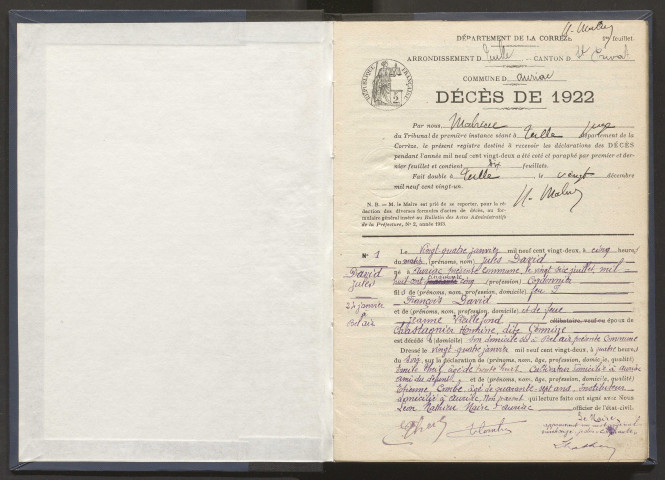 DÉPARTEMENT DE LA CORRÈZE. 1er feuillet.
ARRONDISSEMENT D Tulle — CANTON D St Privat
COMMUNE D auriac
RÉPUBLIQUE FRANÇAISE
DÉCÈS DE 1922
Par nous, juge
du Tribunal de première instance séant à Tulle département de la
Corrèze, le présent registre destiné à recevoir les déclarations des DÉCÈS
pendant l'année mil neuf cent vingt-deux a été coté et paraphé par premier et der-
nier feuillet et contient dix feuillets.
Fait double à Tulle, le vingt décembre
mil neuf cent vingt-un.
N. B. — M. le Maire est prié de se reporter, pour la ré-
daction des diverses formules d'actes de décès, au for-
mulaire général inséré au Bulletin des Actes Administratifs
de la Préfecture, No 2, année 1913.
No 1
David
Jules
24 janvier
Bel air
Le vingt-quatre janvier mil neuf cent vingt-deux, à cinq heures
du matin (prénoms, nom) Jules David
né à auriac présente commune, le vingt six juillet, mil
huit cent cinquante cinq (profession) Cordonnier
fils de (prénoms, nom, profession, domicile) feu
François David
et de (prénoms, nom, profession, domicile) et de feue
Jeanne Vieillefond célibataire, veuf ou époux de
Chastagnier dite
est décédé à (domicile) son domicile sis à Bel air présente Commune
Dressé le vingt-quatre janvier mil neuf cent vingt-deux, à quatre heures
du soir, sur la déclaration de (prénoms, nom, âge, profession, domicile, qualité)
Emile âgé de trente huit, Cultivateur domicilié à auriac
ami du défunt, et de (prénoms, nom, âge, profession, domicile, qualité)
Etienne, Combe, âgé de quarante-sept ans, Instituteur
domicilié à auriac, Non parent qui lecture faite ont signé avec Nous
Léon Mathieu Maire d'auriac officier de l'état-civil.
Le Maire,